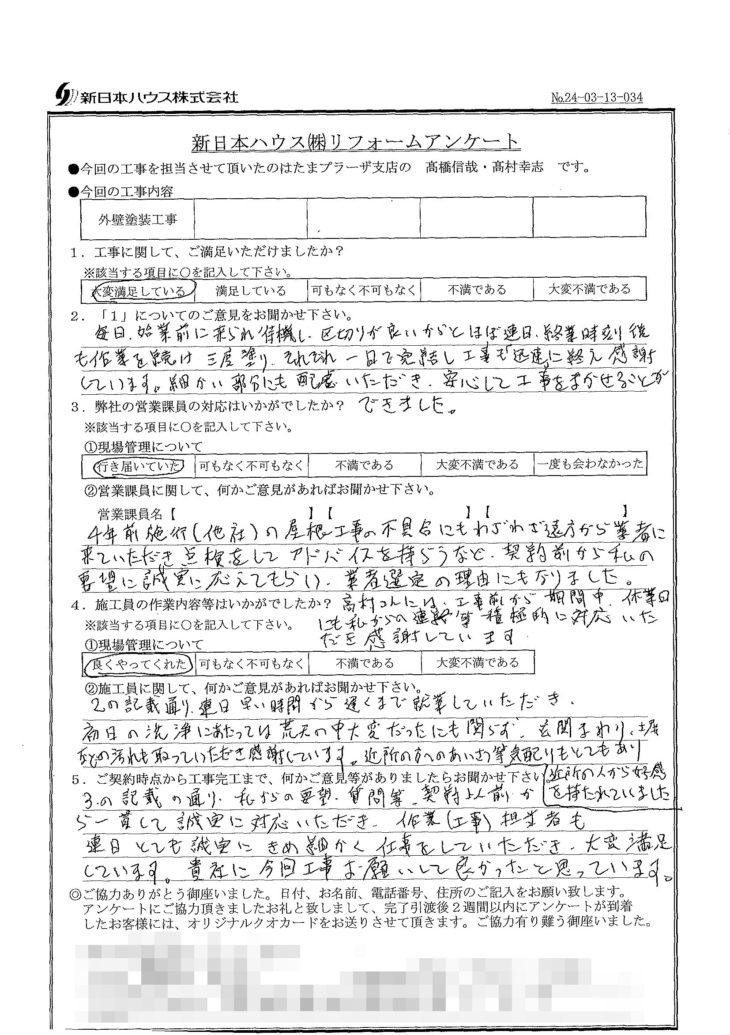 新日本ハウス株式会社
No.24-03-13-034
新日本ハウス㈱リフォームアンケート
●今回の工事を担当させて頂いたのはたまプラーザ支店の 髙橋信哉・髙村幸志 です。
●今回の工事内容
外壁塗装工事
1．工事に関して、ご満足いただけましたか？
※該当する項目に○を記入して下さい。
大変満足している 満足している 可もなく不可もなく 不満である 大変不満である
2．「1」についてのご意見をお聞かせ下さい。
毎日、始業前に来られ待機し、区切りが良いからとほぼ連日、終業時刻後
も作業を続け 三度塗り、それぞれ一日で完結し工事も迅速に終え感謝
しています。細かい部分にも配慮いただき、安心して工事をまかせることが
できました。
3．弊社の営業課員の対応はいかがでしたか？
※該当する項目に○を記入して下さい。
①現場管理について
行き届いていた 可もなく不可もなく 不満である 大変不満である 一度も会わなかった
②営業課員に関して、何かご意見があればお聞かせ下さい。
営業課員名【 】【 】
4年前施行(他社)の屋根工事の不具合にもわざわざ遠方から業者に
来ていただき点検をしてアドバイスを持らうなど、契約前から私の
要望に誠実に応えてもらい、業者選定の理由にもなりました。
高村さんには、工事前から期間中、休業日
にも私からの連絡等積極的に対応いた
だき感謝しています
4．施工員の作業内容等はいかがでしたか？
※該当する項目に○を記入して下さい。
①現場管理について
良くやってくれた 可もなく不可もなく 不満である 大変不満である
②施工員に関して、何かご意見があればお聞かせ下さい。
2の記載通り、連日早い時間から遅くまで就業していただき、
初日の洗浄にあたっては荒天の中大変だったにも関らず、玄関まわり、塀
などの汚れも取っていただき感謝しています。近所の方へのあいさつ等気配りもとてもあり
近所の人から好感
を持たれていました
5．ご契約時点から工事完工まで、何かご意見等がありましたらお聞かせ下さい
3.の記載の通り、私からの要望、質問等、契約以前か
ら一貫して誠実に対応いただき、作業(工事)担当者も
連日とても誠実にきめ細かく仕事をしていただき、大変満足
しています。貴社に今回工事お願いして良かったと思っています。
◎ご協力ありがとう御座いました。日付、お名前、電話番号、住所のご記入をお願い致します。
アンケートにご協力頂きましたお礼と致しまして、完了引渡後2週間以内にアンケートが到着
したお客様には、オリジナルクオカードをお送りさせて頂きます。ご協力有り難う御座いました。